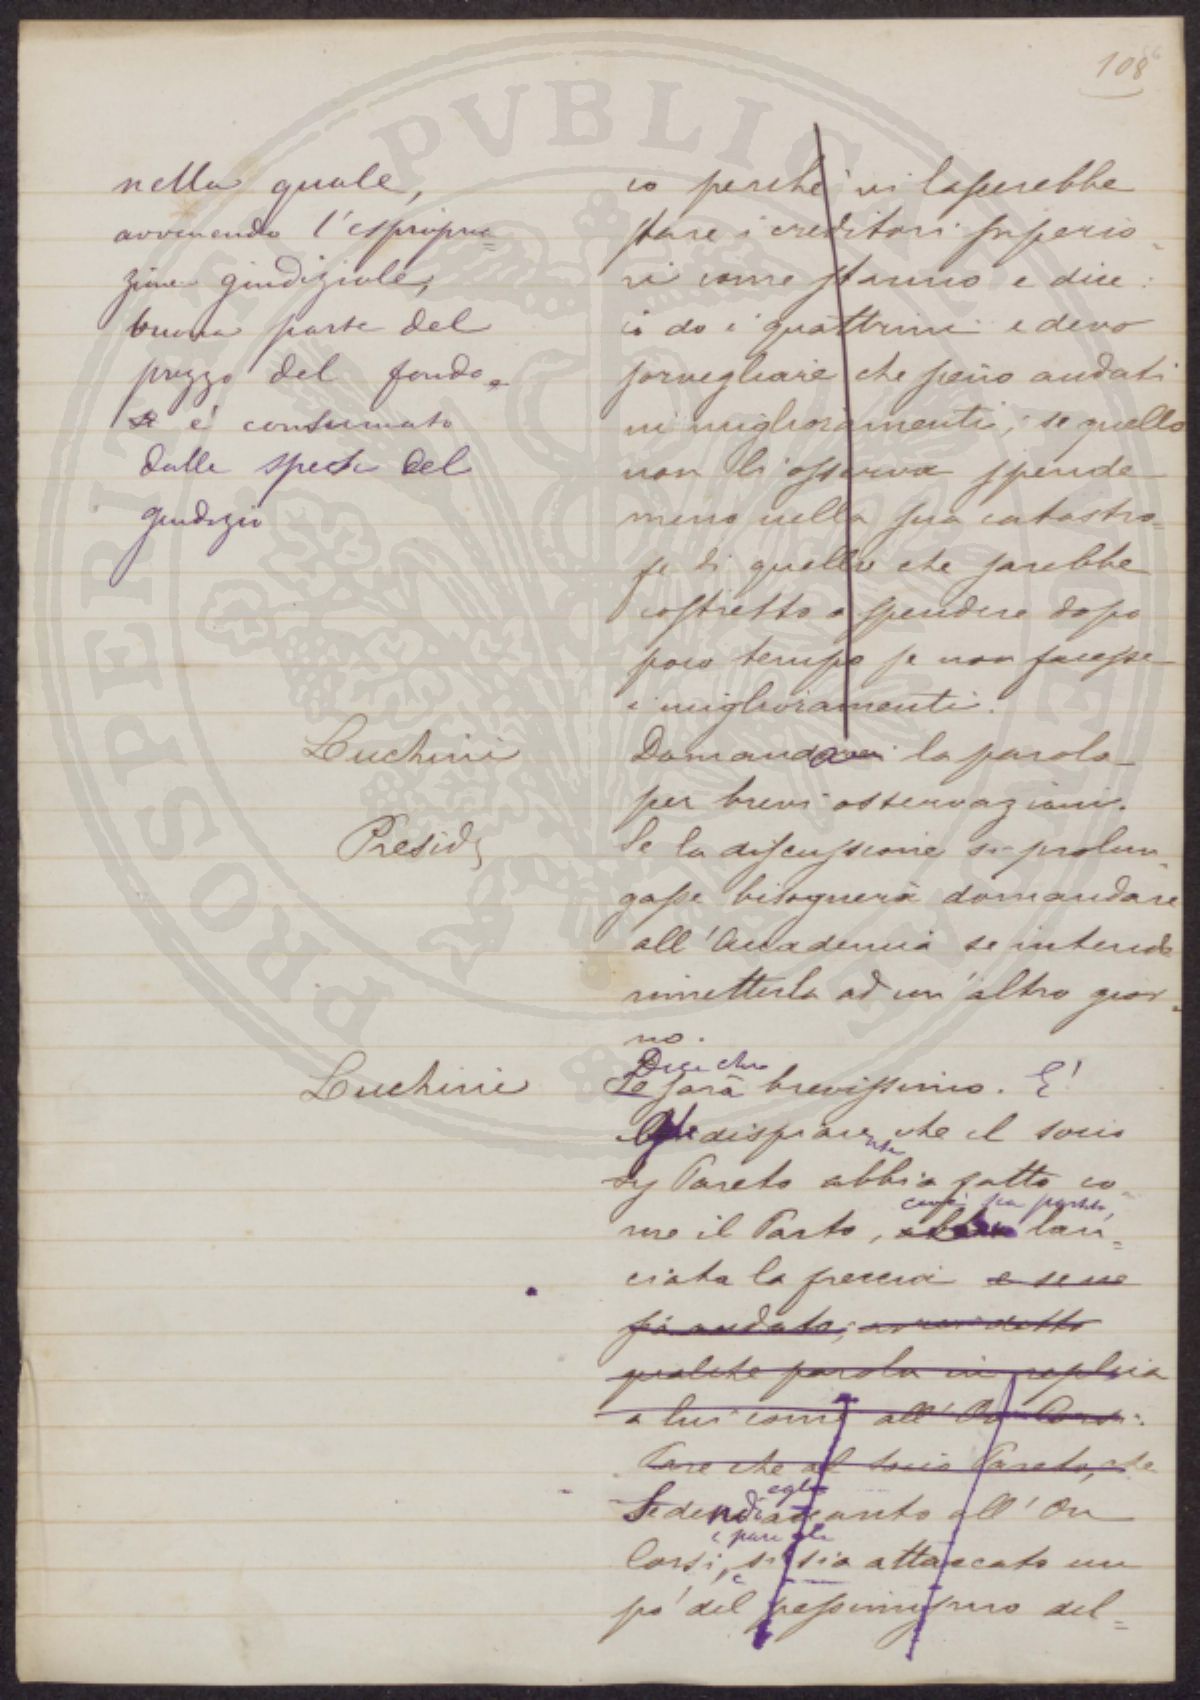 108
nella quale,
avvenendo l'espropria=
zione giudiziale,
buona parte del
prezzo del fondo
se è consumato
dalle spese del
giudizio
io perchè vi lascerebbe
stare i creditori superio-
ri come stanno e dice:
io do i quattrini e devo
sorvegliare che sieno andati
in miglioramenti; se quello
non li osserva spende
meno nella sua catastro=
fe di quello che sarebbe
costretto a spendere dopo
poco tempo se non facesse
i miglioramenti.
Luchini
Domanda la parola
per brevi osservazioni.
Presid
Se la discussione si prolun=
gasse bisognerà domandare
all'Accademia se intende
rimetterla ad un'altro gior=
no.
Luchini
Dice che
Se sarà brevissimo. E'
dispiacente che il socio
Pareto abbia fatto co=
me il Parto, lan=
ciata la freccia e se ne
sia andato; avrei detto
qualche parola in replica
a lui come all'On Corsi.
Pare che al socio Pareto, che
egli
Sedendo accanto all'On
e pare che
Corsi, si sia attaccato un
po' del pessimismo del=
PVBLICAE
PROSPERITATI